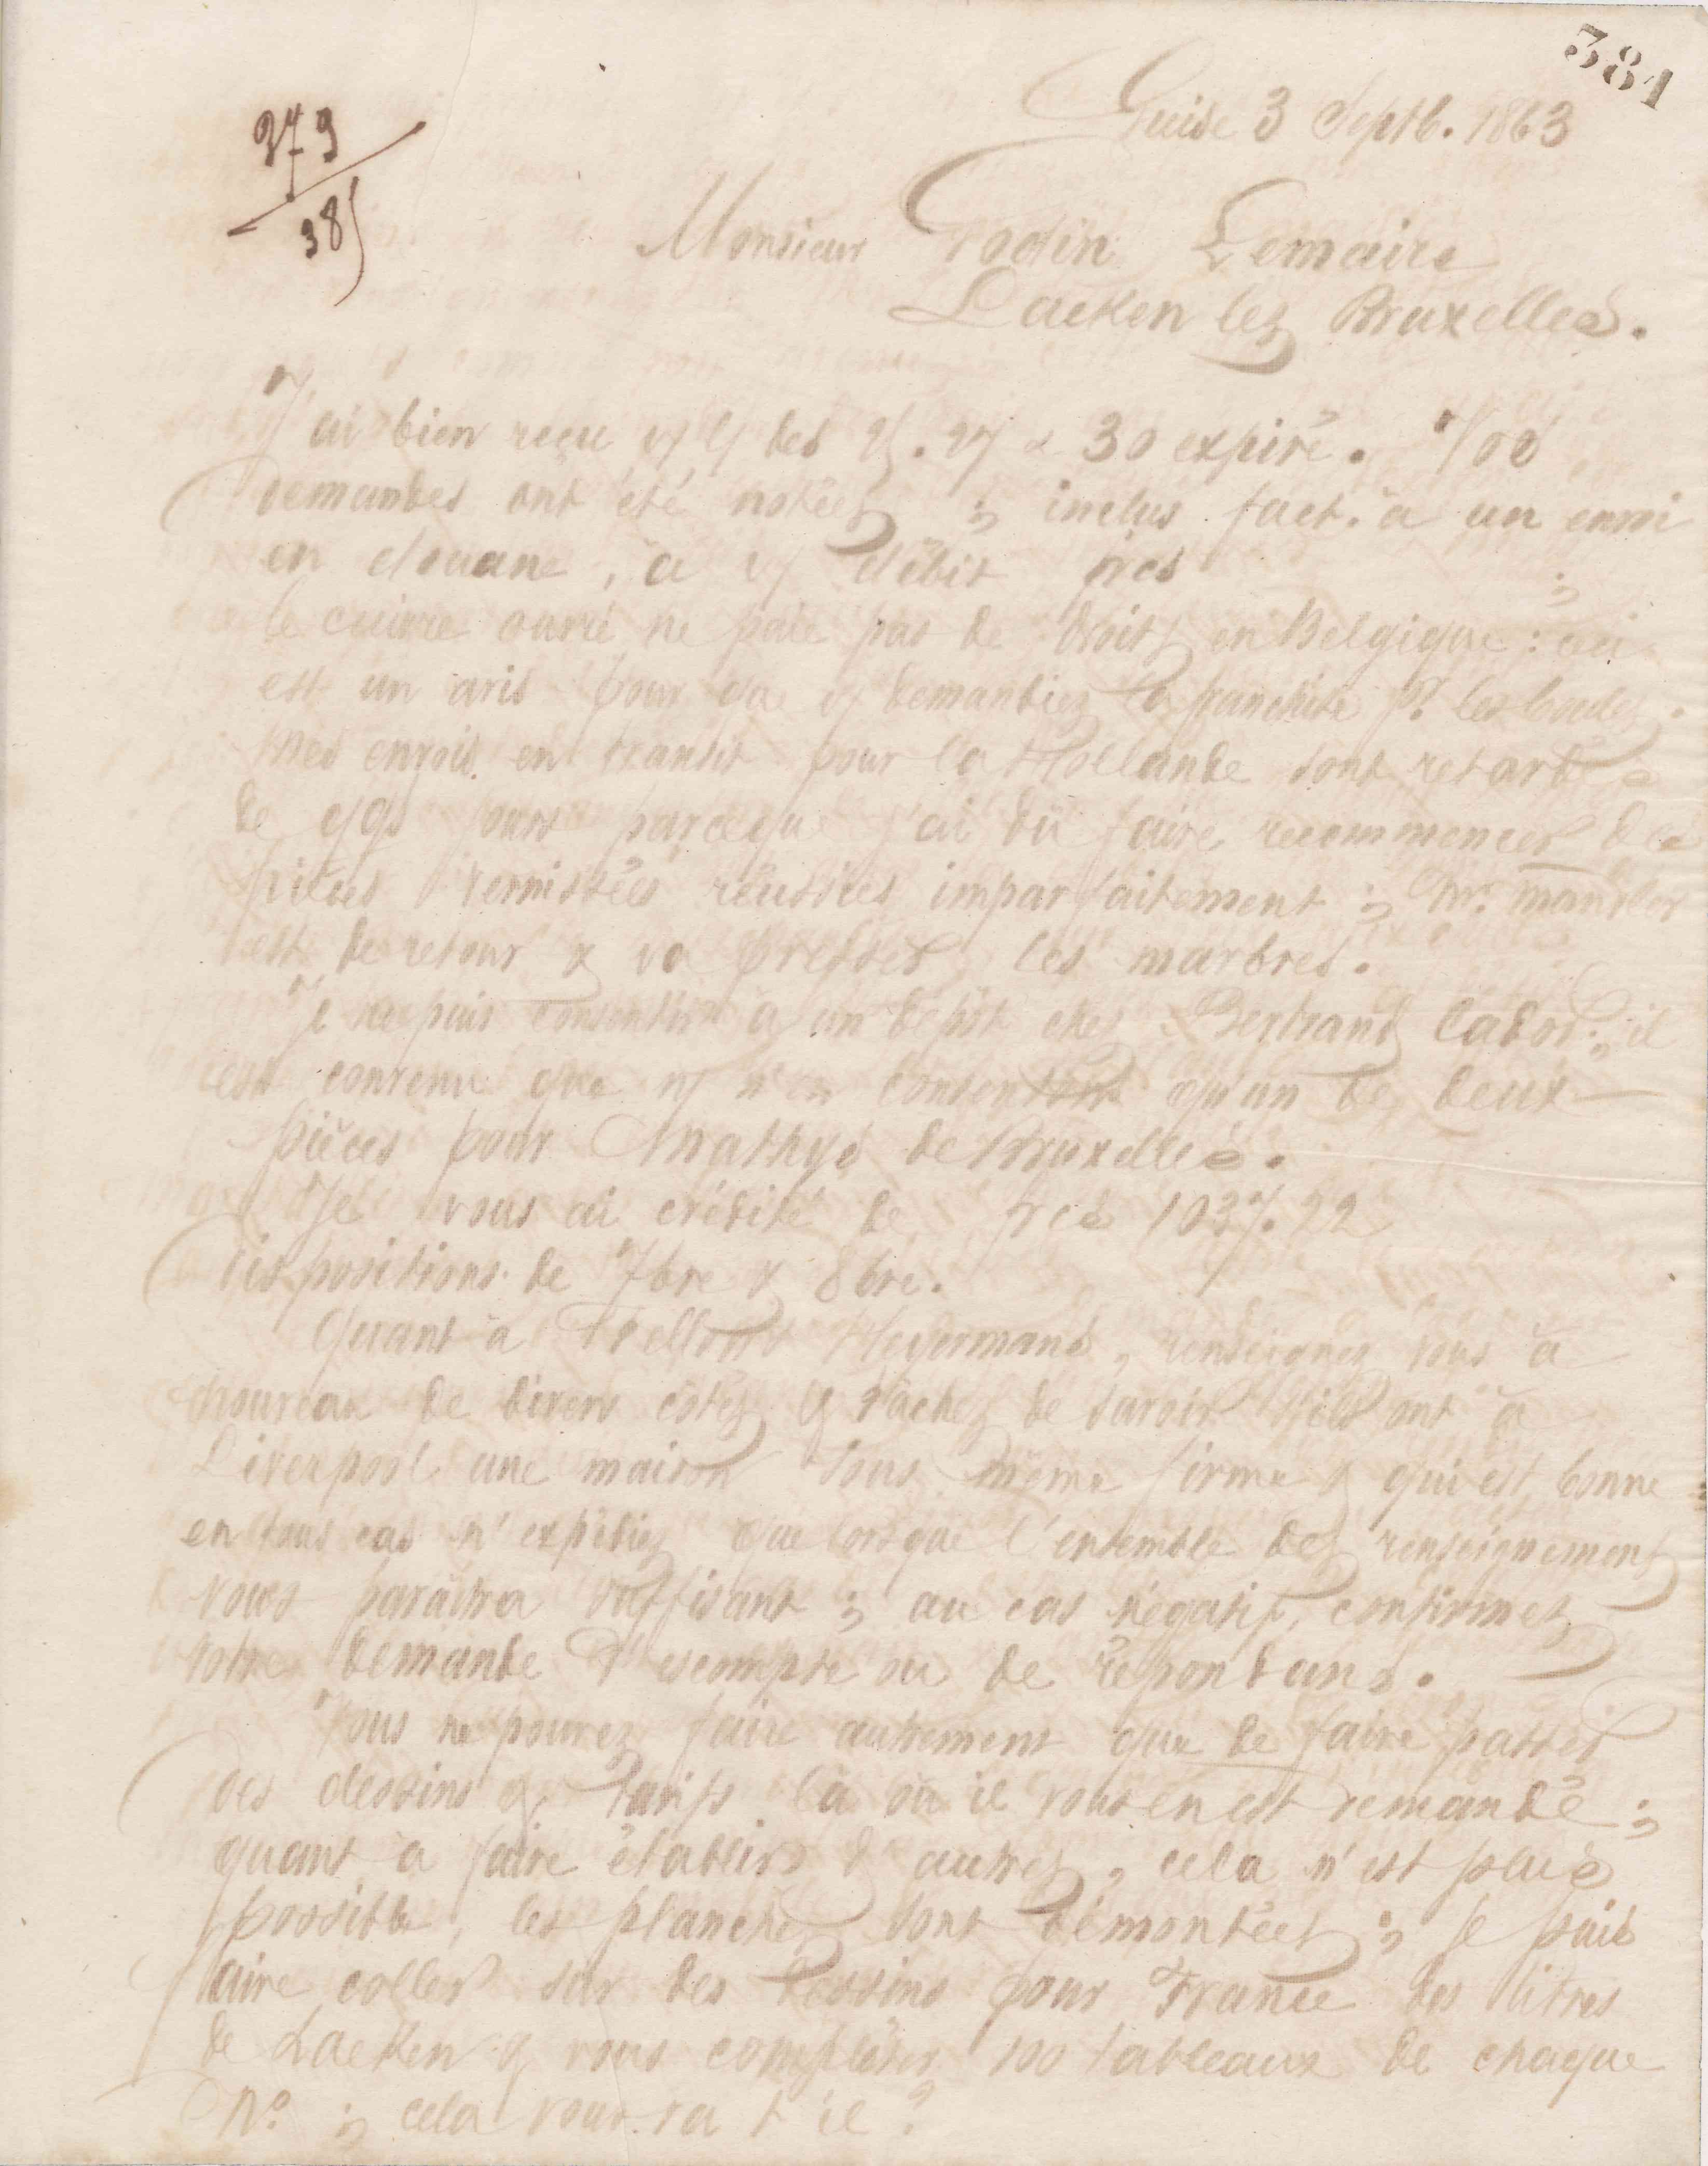 381
379
385
Guise 3 Septb. 1863
Monsieur Godin Lemaire
Laeken lez Bruxelles.
J'ai bien reçu des 30 expiré.
demandes ont été notées ; inclus fact. à un envoi
en douane, à débit frcs ;
le cuivre ouvré ne paie pas de droits en Belgique : ceci
est un avis pour que demandiez la franchise pr. les
Mes envois en transit pour la Hollande sont retardés
de qqs jours parcequ j'ai dû faire recommencer des
pièces vernissées réussies imparfaitement ; Mr.
est de retour & va presser les marbres.
Je ne puis consentir à un dépôt chez Bertrand ; il
est convenu que n'en consentons qu'un de deux
pièces pour Mathys de Bruxelles.
Je vous ai crédité de frcs 22
dispositions de 7bre & 8bre.
Quant à Heyermans, renseignez vous à
nouveau de divers côtés & tâchez de savoir s'ils ont à
Liverpool une maison sous même firme & qui est bonne
en tous cas n'expédiez que lorsque l'ensemble des renseignements
vous paraîtra suffisant ; au cas négatif, confirmez
votre demande d'escompte ou de répondans.
Vous ne pouvez faire autrement que de faire passer
des dessins & tarifs là où il vous en est demandé ;
quant à faire établir d'autres, cela n'est plus
possible, les planches sont démontées ; je puis
faire coller sur des dessins pour France des titres
de Laeken & vous compléter 100 tableaux de chaque
No. ; cela vous va t'il ?